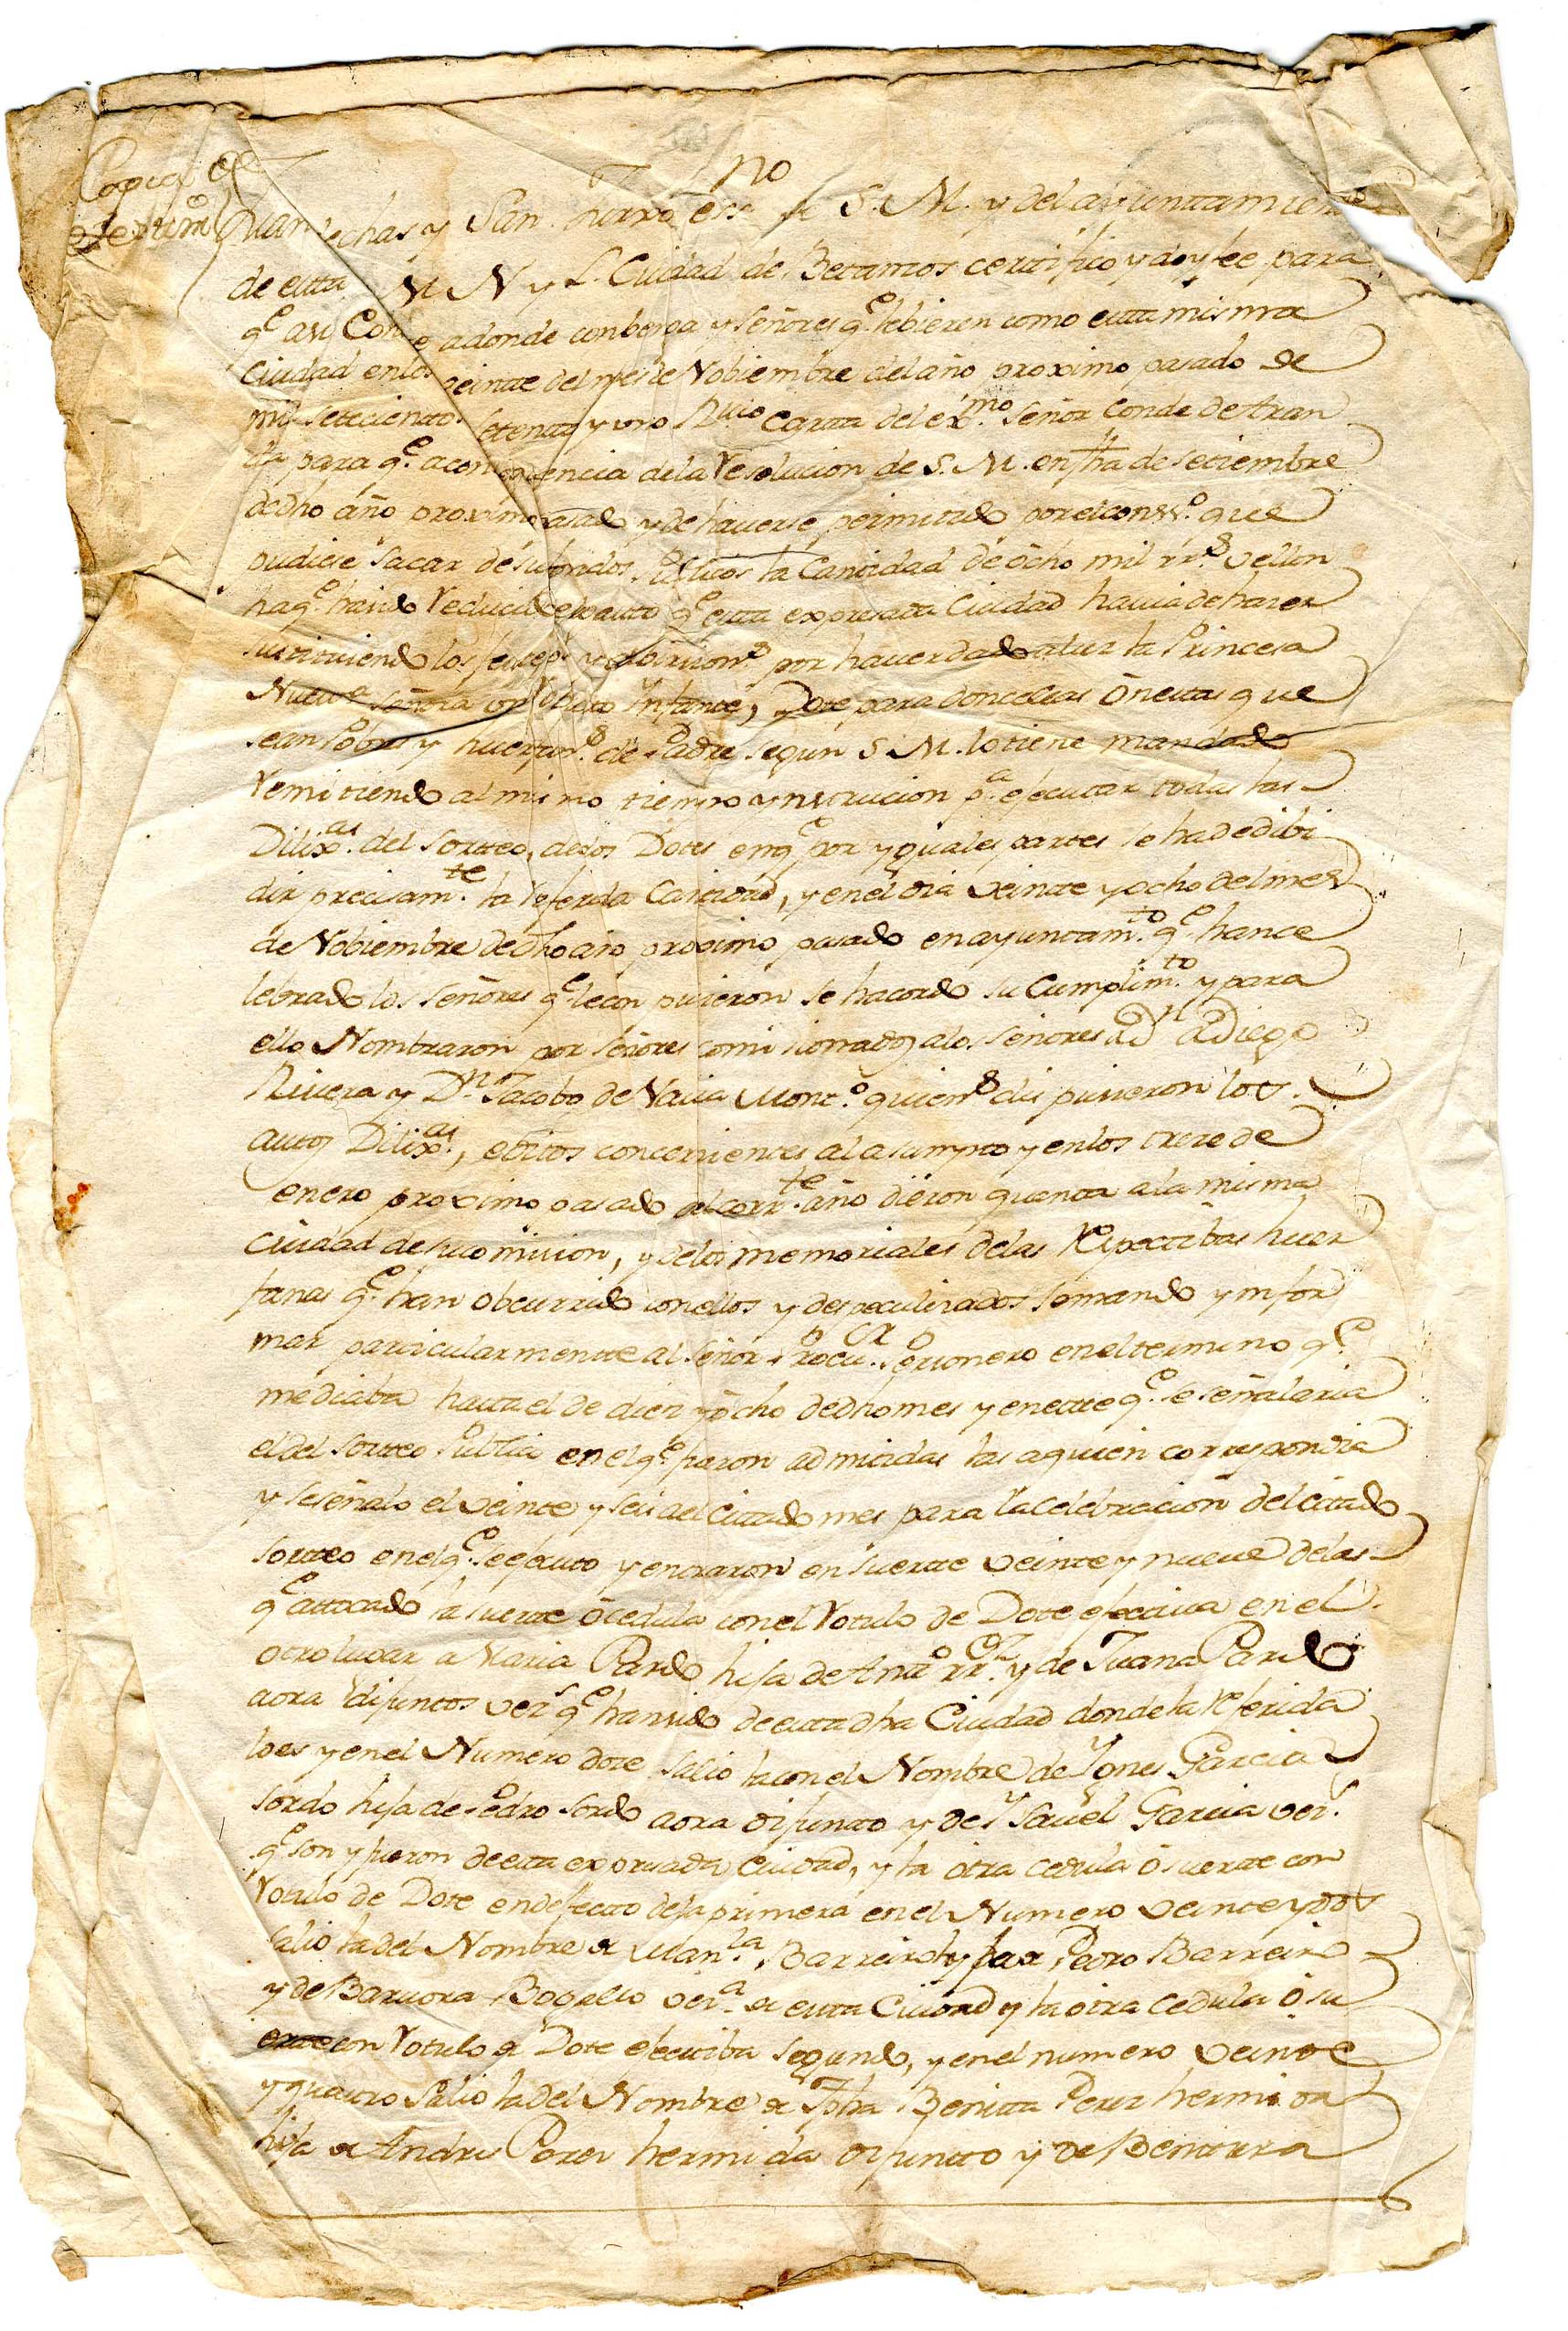 Copia de
testim.º
Juan echas y San. essno de S. M. y del ayuntamiento
de esta M N y L. Ciudad de Betanzos certifico y doy fee para
q.e asi Con e adonde conbenga y señores q.e debieren como esta misma
Ciudad en los veinte del mes de Nobiembre del año proximo pasado de
mil setecientos setenta y uno carta del ex.mo Señor Conde de Aran
da para q.e a consequencia de la Resolucion de S. M. en fha de setiembre
de dho año proximo pasado y de haverse permitido por el cons.o que
pudiese sacar de sus fondos Publicos la Cantidad de ocho mil rr.s vellon
ha q.e esta expresada Ciudad havia de hazer
los por haver dado a luz la Princesa
Nuestra señora un Infante, Dote para doncellas onestas que
sean Pobres y huerfan.s de Padre segun S. M. lo tiene mandado
Remitiendo al mismo tiempo ynstrucion p.a ejecutar todas las
Dilix.as del Sorteo, de dos Dotes en q.e por yguales partes se ha de dibi
dir precisam.te la referida Cantidad, y en el dia veinte y ocho del mes
de Nobiembre de dho año proximo pasado en ayuntam.to q.e han ce
lebrado los Señores q.e le conpusieron se hacordo su Cumplim.to y para
ello Nombraron por señores comisionados a los señores a D.n Diego
Rivera y D.n Jacobo de Navia Mont.o quien.s dispusieron los
autos Dilix.as, editos concernientes al asumpto y en los treze de
enero proximo pasado del corr.te año dieron quenta a la misma
Ciudad de su comision, y de los memoriales de las Respectibas huer
fanas q.e han obcurrido con ellos y tomando ynfor
mar particularmente al Señor Procu.or personero en el termino q.e
mediaba hasta el de diez y ocho de dho mes y en este q.e se señalaria
el del sorteo Publico en el q.e fueron admitidas las a quien correspondia
y se señalo el veinte y seis del citado mes para la celebracion del citado
sorteo en el q.e se ejecuto y entraron en suerte veinte y nueve de las
q.e a tocado la suerte o cedula con el Rotulo de Dote efectiva en el
otro lugar a Maria Pardo hija de Ant.o rr.ez y de Juana Pardo
aora difuntos vez.s q.e han sido de esta dha Ciudad donde la Referida
lo es y en el Numero doze salio la con el Nombre de Ygnes Garcia
sordo hija de Pedro Sordo aora difunto y de Ysavel Garcia vez.s
q.e son y fueron de esta expresada Ciudad, y la otra cedula o suerte con
Rotulo de Dote en defecto de la primera en el Numero veinte y dos
salio la del Nombre de Man.la Barreiro hija de Pedro Barreiro
y de Barvora Bogallo vez.a de esta Ciudad y la otra cedula o su
erte con Rotulo de Dote efectiba segundo, y en el numero veinte
y quatro salio la del Nombre de Jpha Benitta Perez hermida
hija de Andres Perez hermida difunto y de Bentura